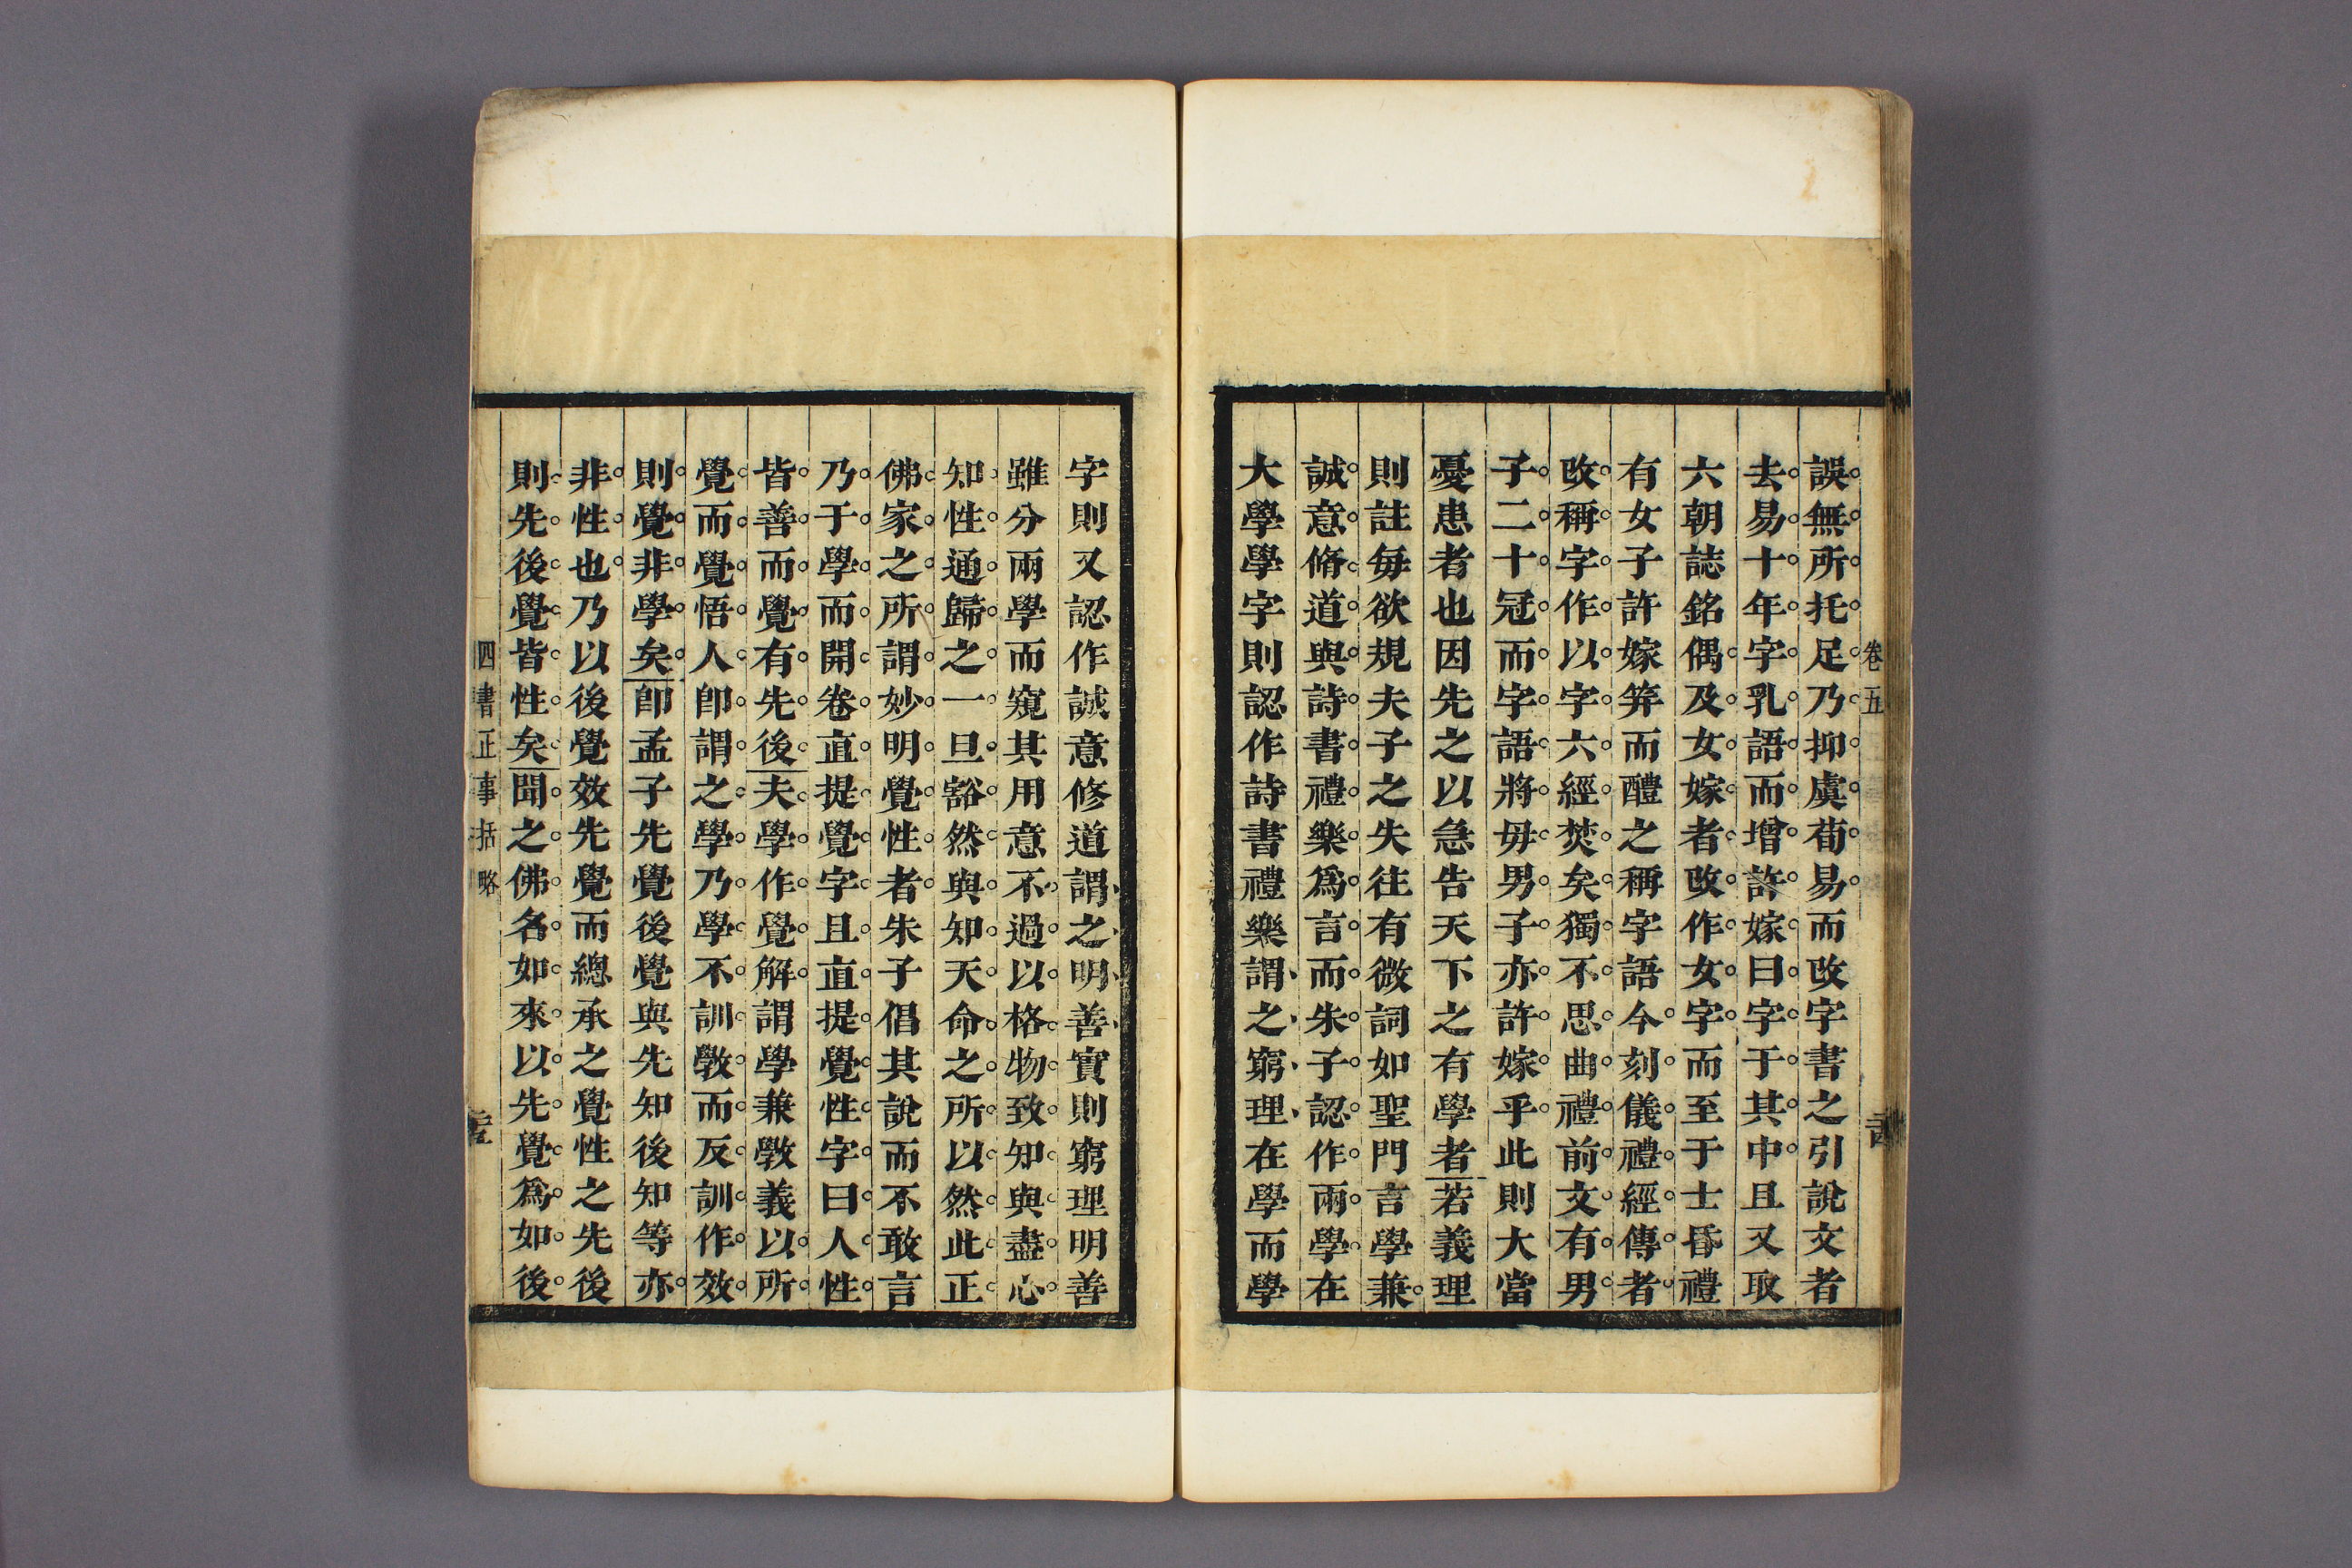 卷五
誤無所托足乃抑虞荀易而改字書之引說文者
去易十年字乳語而增許嫁曰字于其中且又取
六朝誌銘偶及女嫁者改作女字而至于士昏禮
有女子許嫁笄而醴之稱字語今刻儀禮經傳者
改稱字作以字六經焚矣獨不思曲禮前文有男
子二十冠而字語將毋男子亦許嫁乎此則大當
憂患者也因先之以急告天下之有學者若義理
則註每欲規夫子之失往有微詞如聖門言學兼
誠意脩道與詩書禮樂爲言而朱子認作兩學在
大學學字則認作詩書禮樂謂之窮理在學而學
字則又認作誠意修道謂之明善實則窮理明善
雖分兩學而窺其用意不過以格物致知與盡心
知性通歸之一旦豁然與知天命之所以然此正
佛家之所謂妙明覺性者朱子倡其說而不敢言
乃于學而開卷直提覺字且直提覺性字曰人性
皆善而覺有先後夫學作覺解謂學兼斆義以所
覺而覺悟人卽謂之學乃學不訓斆而反訓作效
則覺非學矣卽孟子先覺後覺與先知後知等亦
非性也乃以後覺效先覺而總承之覺性之先後
則先後覺皆性矣聞之佛名如來以先覺爲如後
四書正事括略